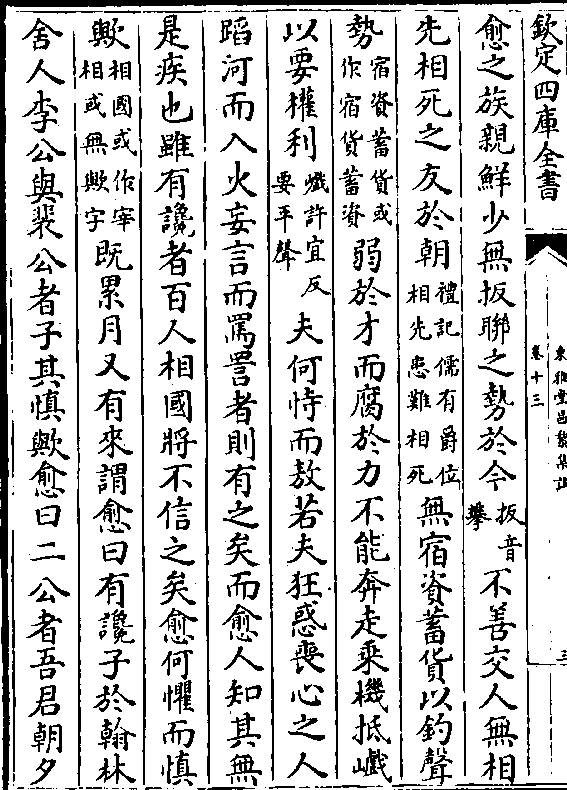 欽定四庫全書
東雅堂昌黎集註
卷十三
三
愈之族親鮮少無扳聯之勢於今扳音攀不善交人無相
先相死之友於朝禮記儒有爵位相先患難相死無宿資蓄貨以釣聲
勢宿資蓄貨或作宿貨蓄資弱於才而腐於力不能奔走乘機抵巇
以要權利巇許宜反要平聲夫何恃而敖若夫狂惑喪心之人
蹈河而入火妄言而罵詈者則有之矣而愈人知其無
是疾也雖有讒者百人相國將不信之矣愈何懼而慎
歟相國或作宰相或無歟字既累月又有來謂愈曰有讒子於翰林
舍人李公與裴公者子其慎歟愈曰二公者吾君朝夕